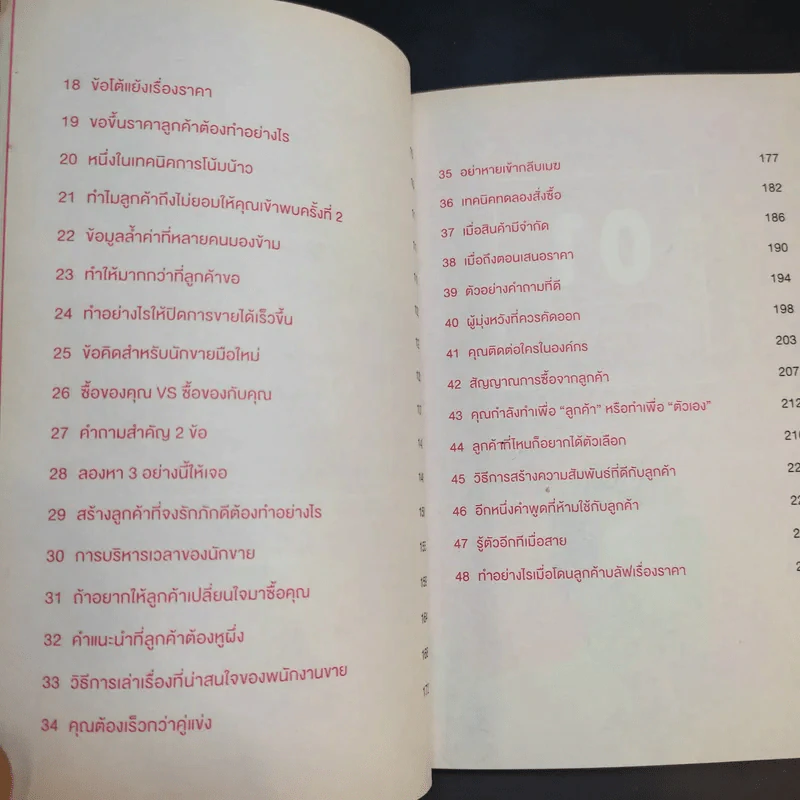 18 ข้อโต้แย้งเรื่องราคา
19 ขอขึ้นราคาลูกค้าต้องทำอย่างไร
20 หนึ่งในเทคนิคการโน้มน้าว
21 ทำไมลูกค้าถึงไม่ยอมให้คุณเข้าพบครั้งที่ 2
22 ข้อมูลล้ำค่าที่หลายคนมองข้าม
23 ทำให้มากกว่าที่ลูกค้าขอ
24 ทำอย่างไรให้ปิดการขายได้เร็วขึ้น
25 ข้อคิดสำหรับนักขายมือใหม่
26 ซื้อของคุณ VS ซื้อของกับคุณ
27 คำถามสำคัญ 2 ข้อ
28 ลองหา 3 อย่างนี้ให้เจอ
29 สร้างลูกค้าที่จงรักภักดีต้องทำอย่างไร
30 การบริหารเวลาของนักขาย
31 ถ้าอยากให้ลูกค้าเปลี่ยนใจมาซื้อคุณ
32 คำแนะนำที่ลูกค้าต้องหูผึ่ง
33 วิธีการเล่าเรื่องที่น่าสนใจของพนักงานขาย
34 คุณต้องเร็วกว่าคู่แข่ง
35 อย่าหายเข้ากลีบเมฆ 177
36 เทคนิคทดลองสั่งซื้อ 182
37 เมื่อสินค้ามีจำกัด 186
38 เมื่อถึงตอนเสนอราคา 190
39 ตัวอย่างคำถามที่ดี 194
40 ผู้มุ่งหวังที่ควรคัดออก 198
41 คุณติดต่อใครในองค์กร 203
42 สัญญาณการซื้อจากลูกค้า 207
43 คุณกำลังทำเพื่อ “ลูกค้า” หรือทำเพื่อ “ตัวเอง” 212
44 ลูกค้าที่ไหนก็อยากได้ตัวเลือก
45 วิธีการสร้างความสัมพันธ์ที่ดีกับลูกค้า
46 อีกหนึ่งคำพูดที่ห้ามใช้กับลูกค้า
47 รู้ตัวอีกทีเมื่อสาย
48 ทำอย่างไรเมื่อโดนลูกค้าบลัฟเรื่องราคา